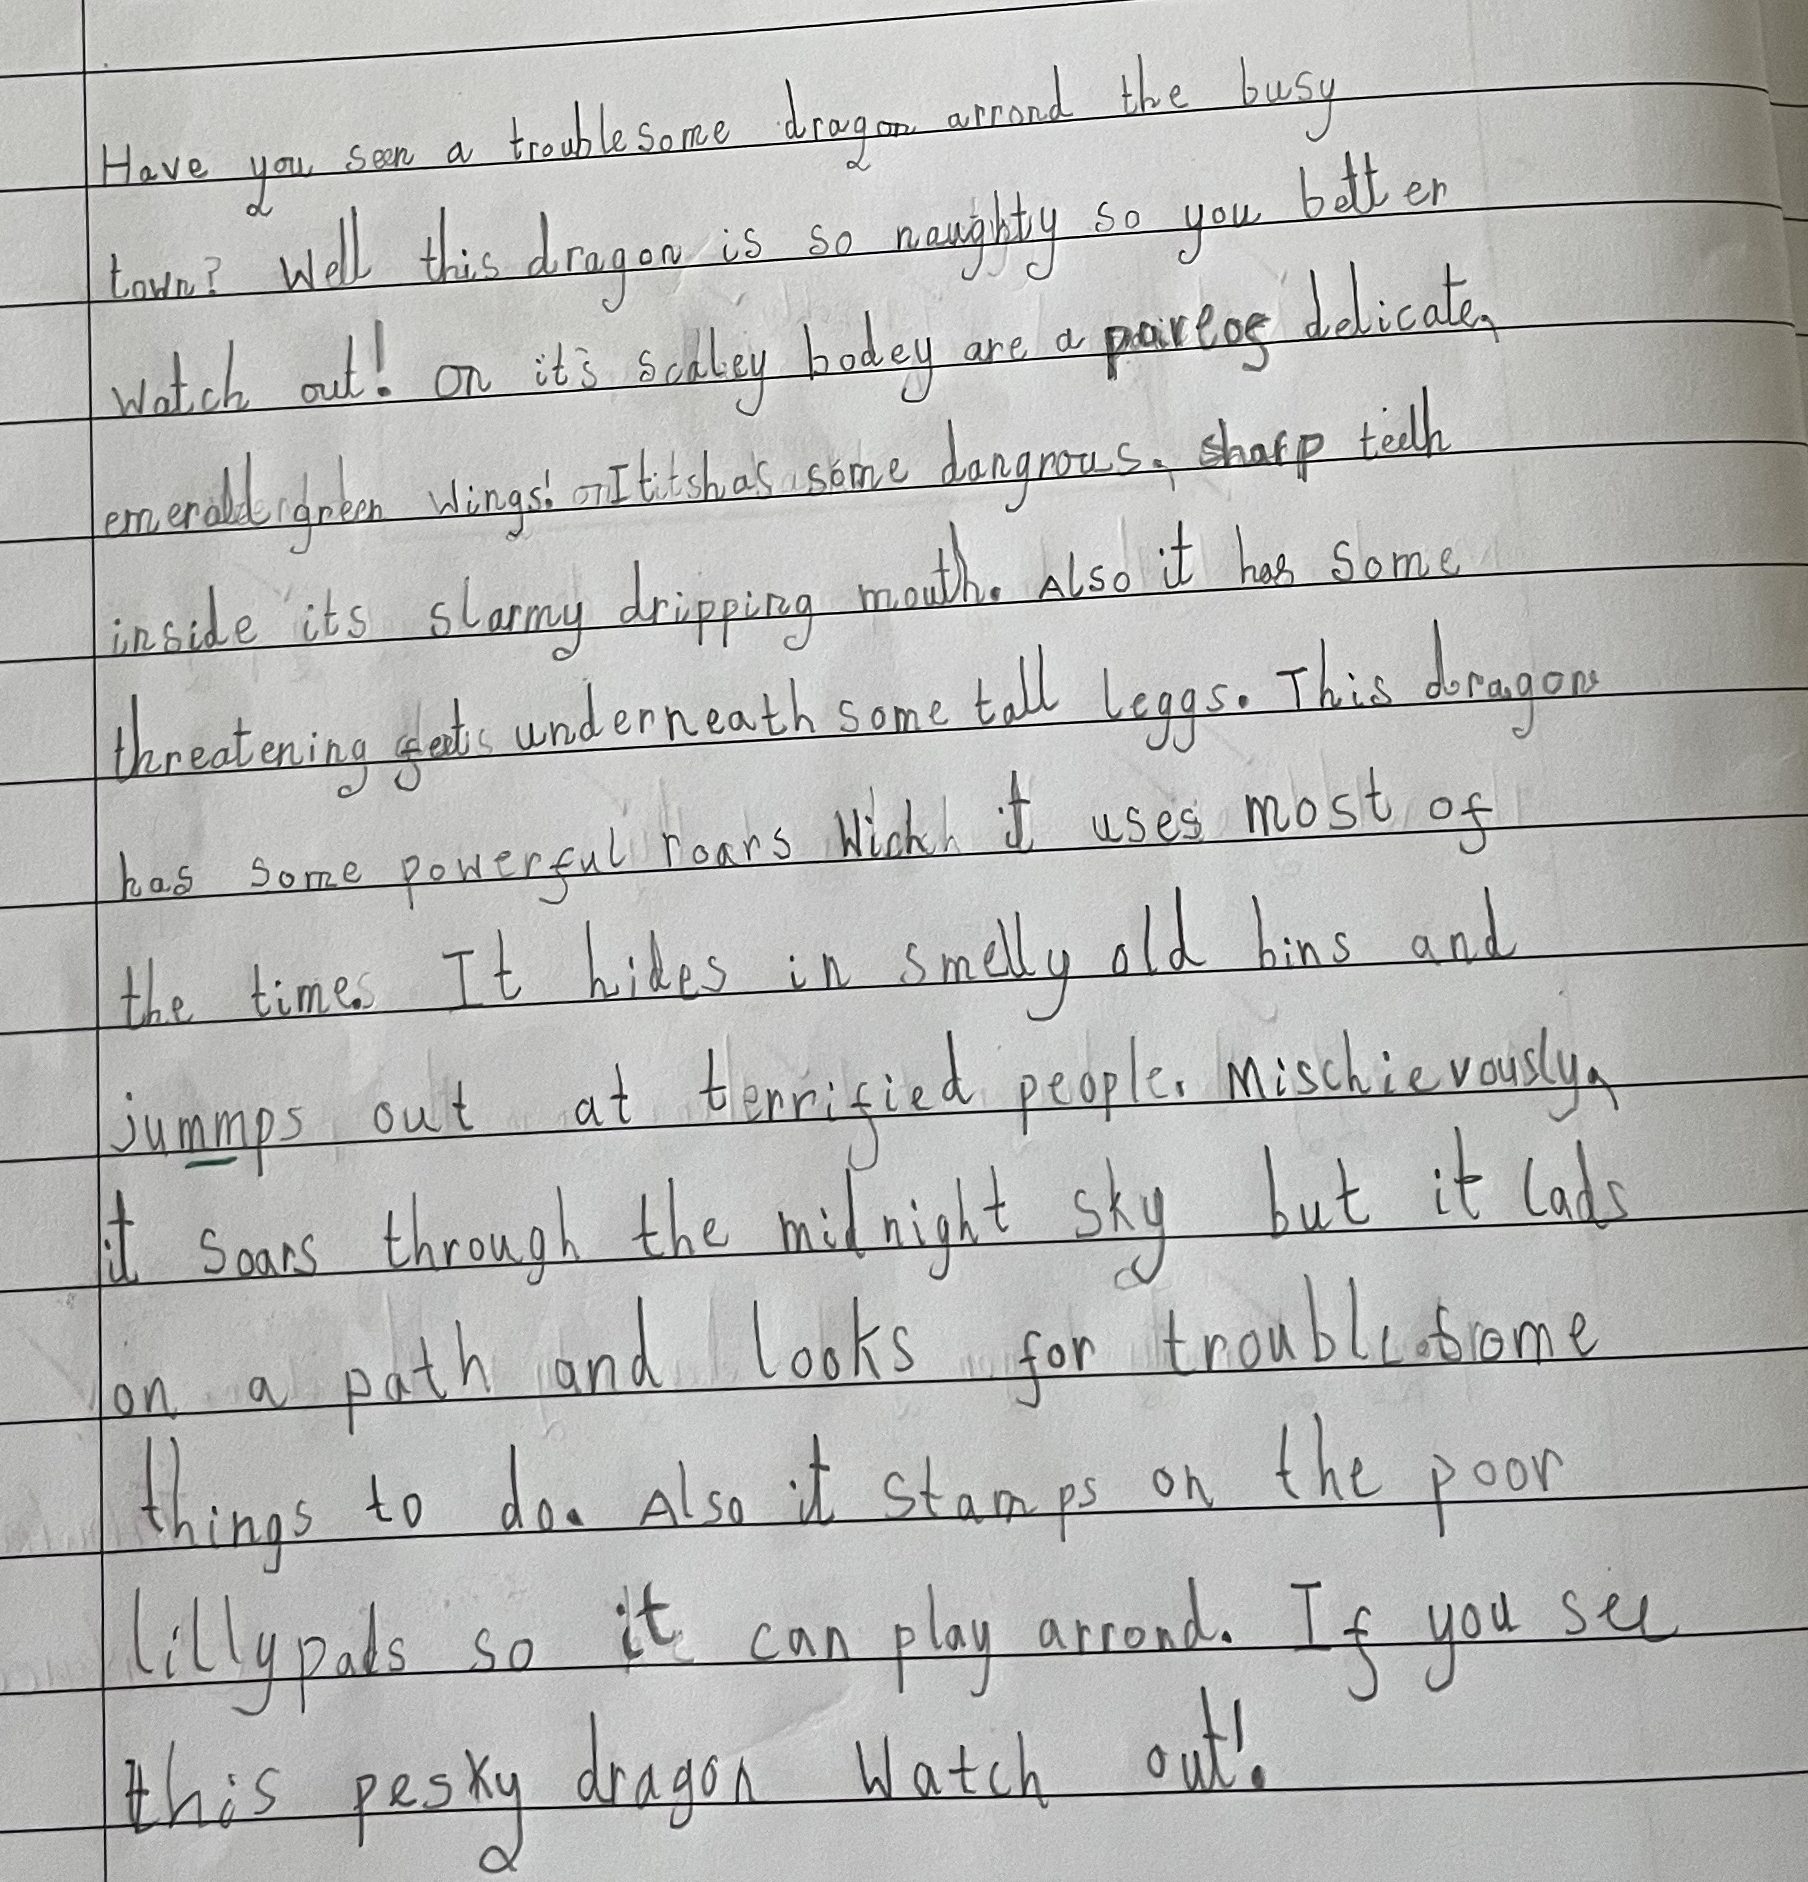 Have you seen a troublesome dragon arrond the busy
town? Well this dragon is so naughty so you better
watch out! On it's scaley bodey are a pair of delicate,
emerald green wings! It has some dangrous, sharp teeth
inside its slarmy dripping mouth. Also it has some
threatening feet underneath some tall leggs. This dragon
has some powerful roars wich it uses most of
the time. It hides in smelly old bins and
jummps out at terrified people. Mischievously,
it soars through the midnight sky but it lads
on a path and looks for troublesome
things to do. Also it stamps on the poor
lillypads so it can play arrond. If you see
this pesky dragon watch out!